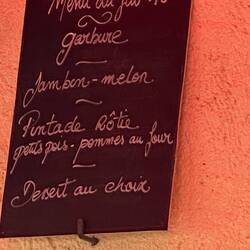 Menu du jour
garbure
Jambon-melon
Pintade Rôtie
petits pois - pommes au four
Desert au choix